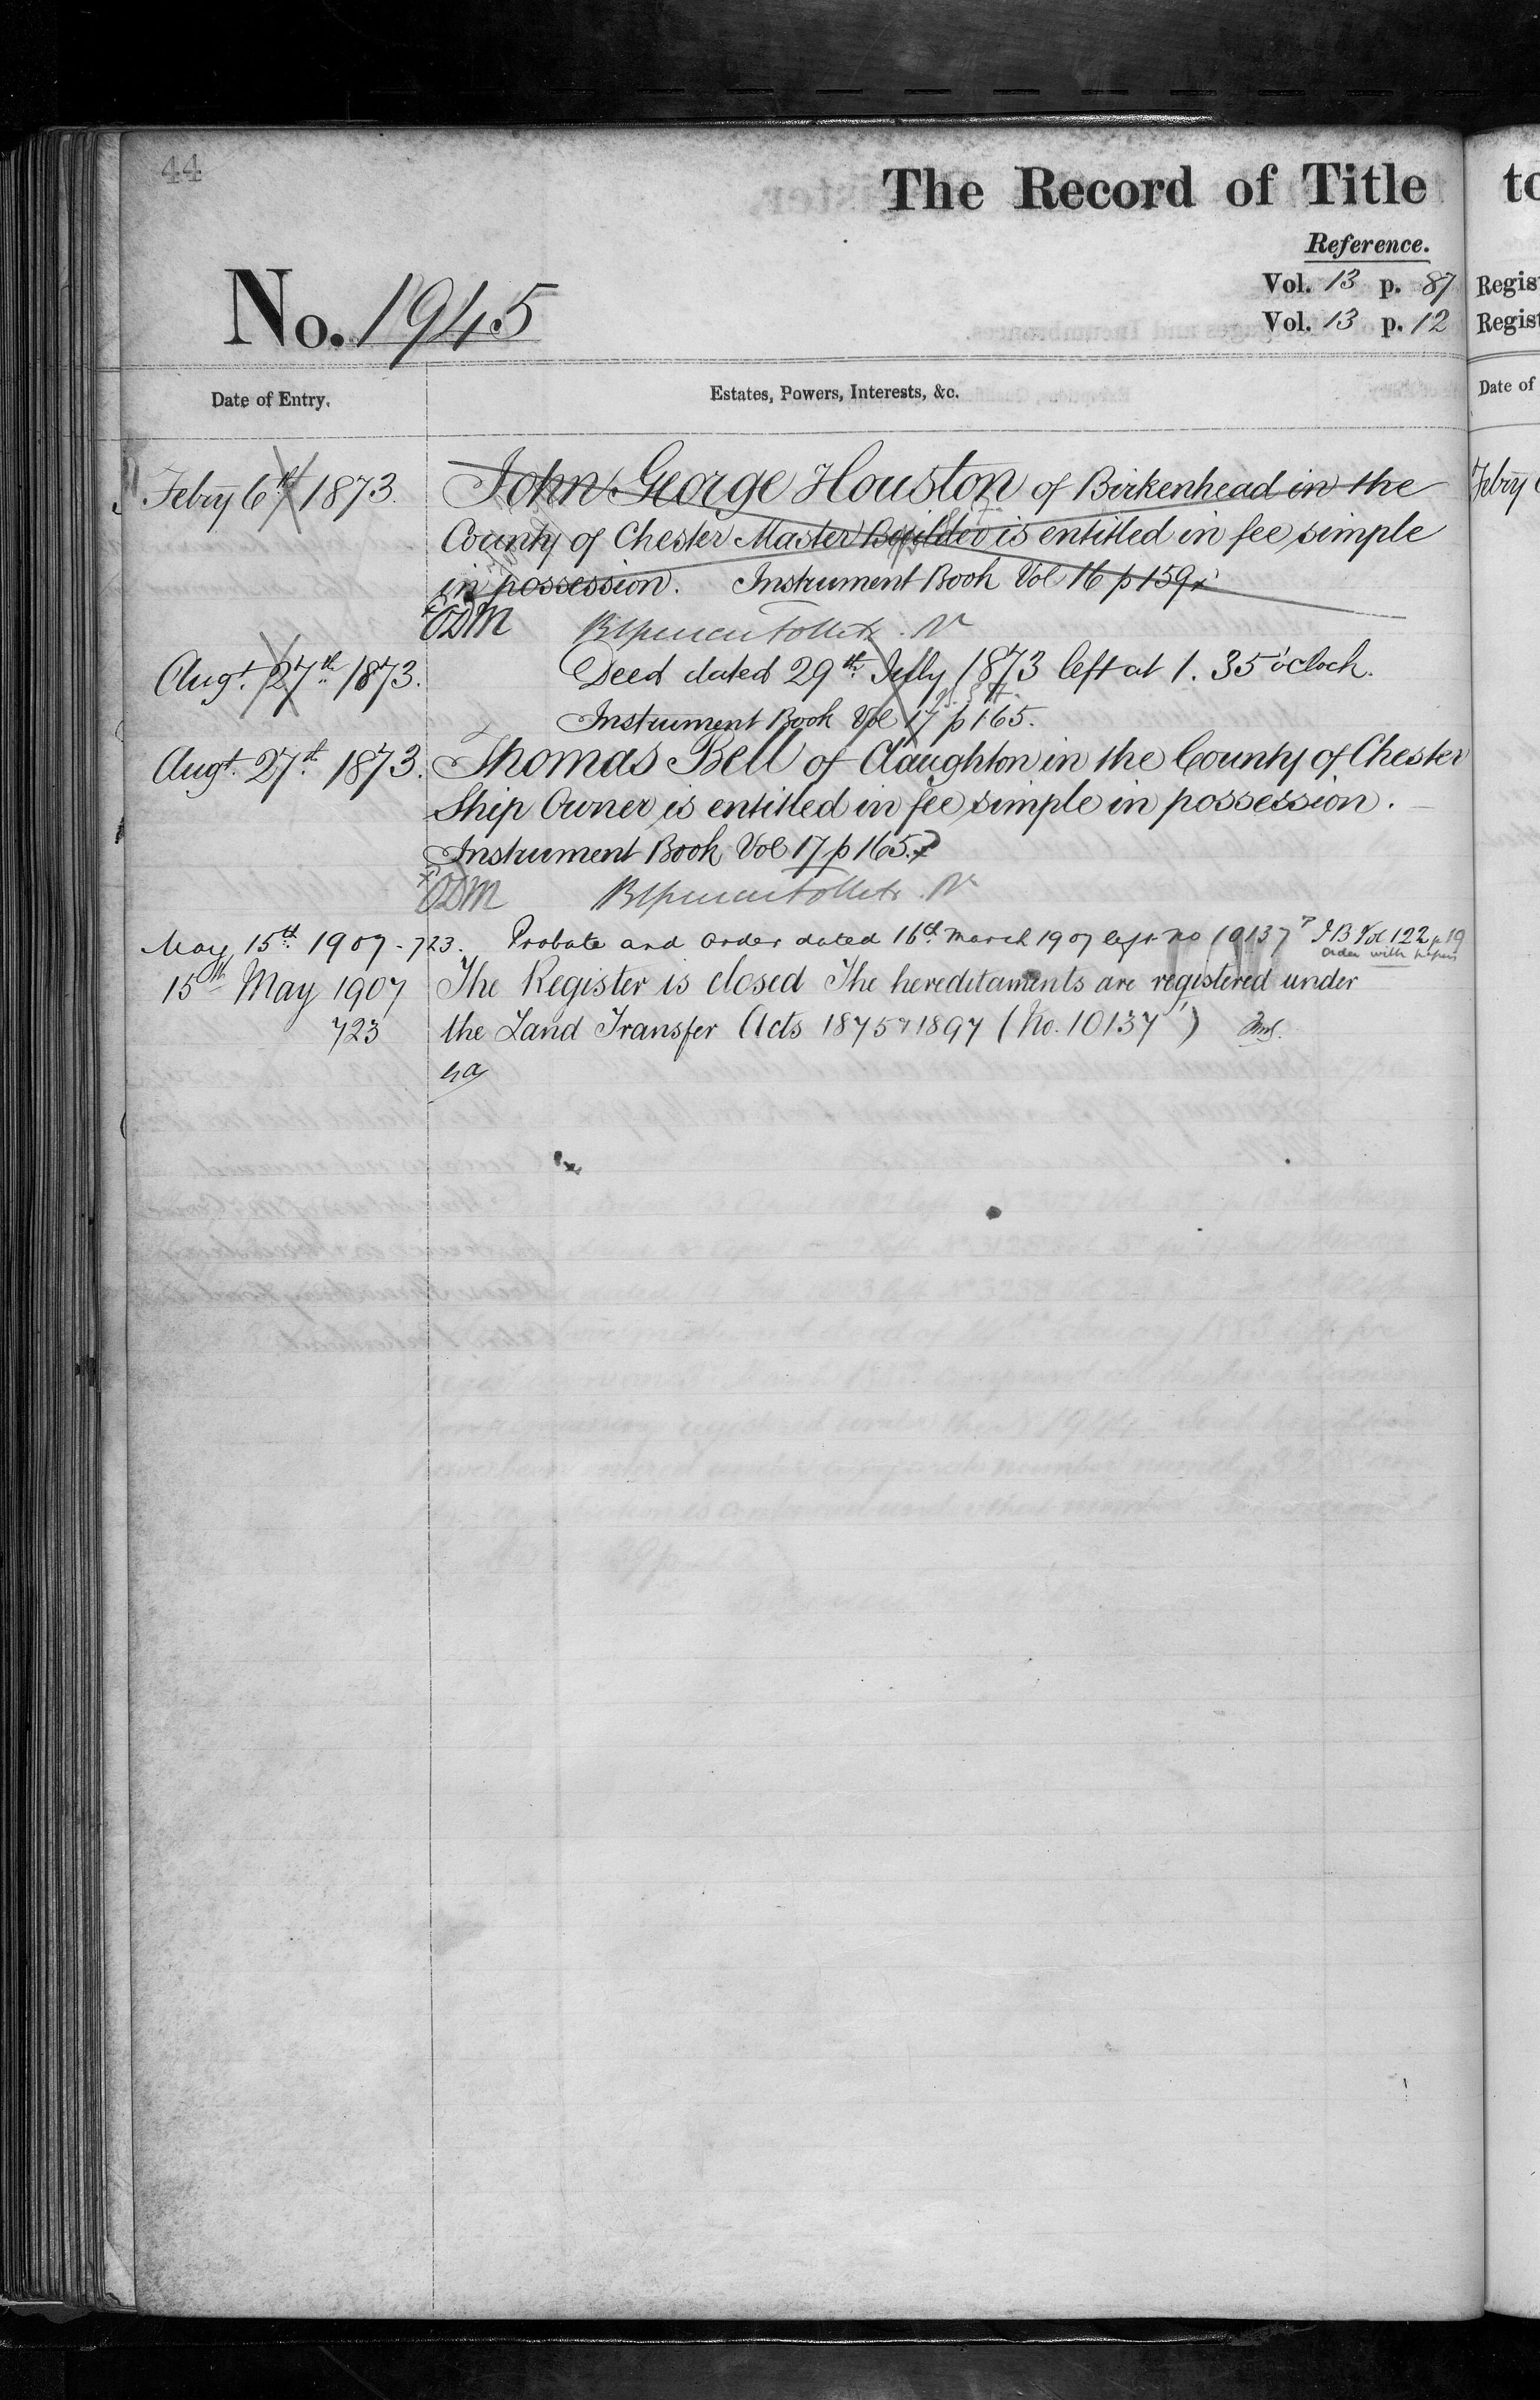 44
The Record of Title
Reference.
Vol. 13 p. 87
Vol. 13 p. 12
No. 1945
Date of Entry.
Estates, Powers, Interests, &c.
Febry 6th 1873.
John George Houston of Birkenhead in the
County of Chester Master Builder is entitled in fee simple
in possession. Instrument Book Vol 16 p 159
Augt. 27th 1873.
Deed dated 29th July 1873 left at 1.35 o'clock.
Instrument Book Vol 17 p 165.
Augt. 27th 1873.
Thomas Bell of Claughton in the County of Chester
Ship Owner is entitled in fee simple in possession.
Instrument Book Vol 17 p 165.
May 15th 1907 - 723.
Probate and order dated 16th March 1907 left no 10137 I B Vol 122 p 19
order with papers
15th May 1907
The Register is closed The hereditaments are registered under
723
the Land Transfer Acts 1875 & 1897 (No. 10137)
to
Regis
Regist
Date of
Febry 6